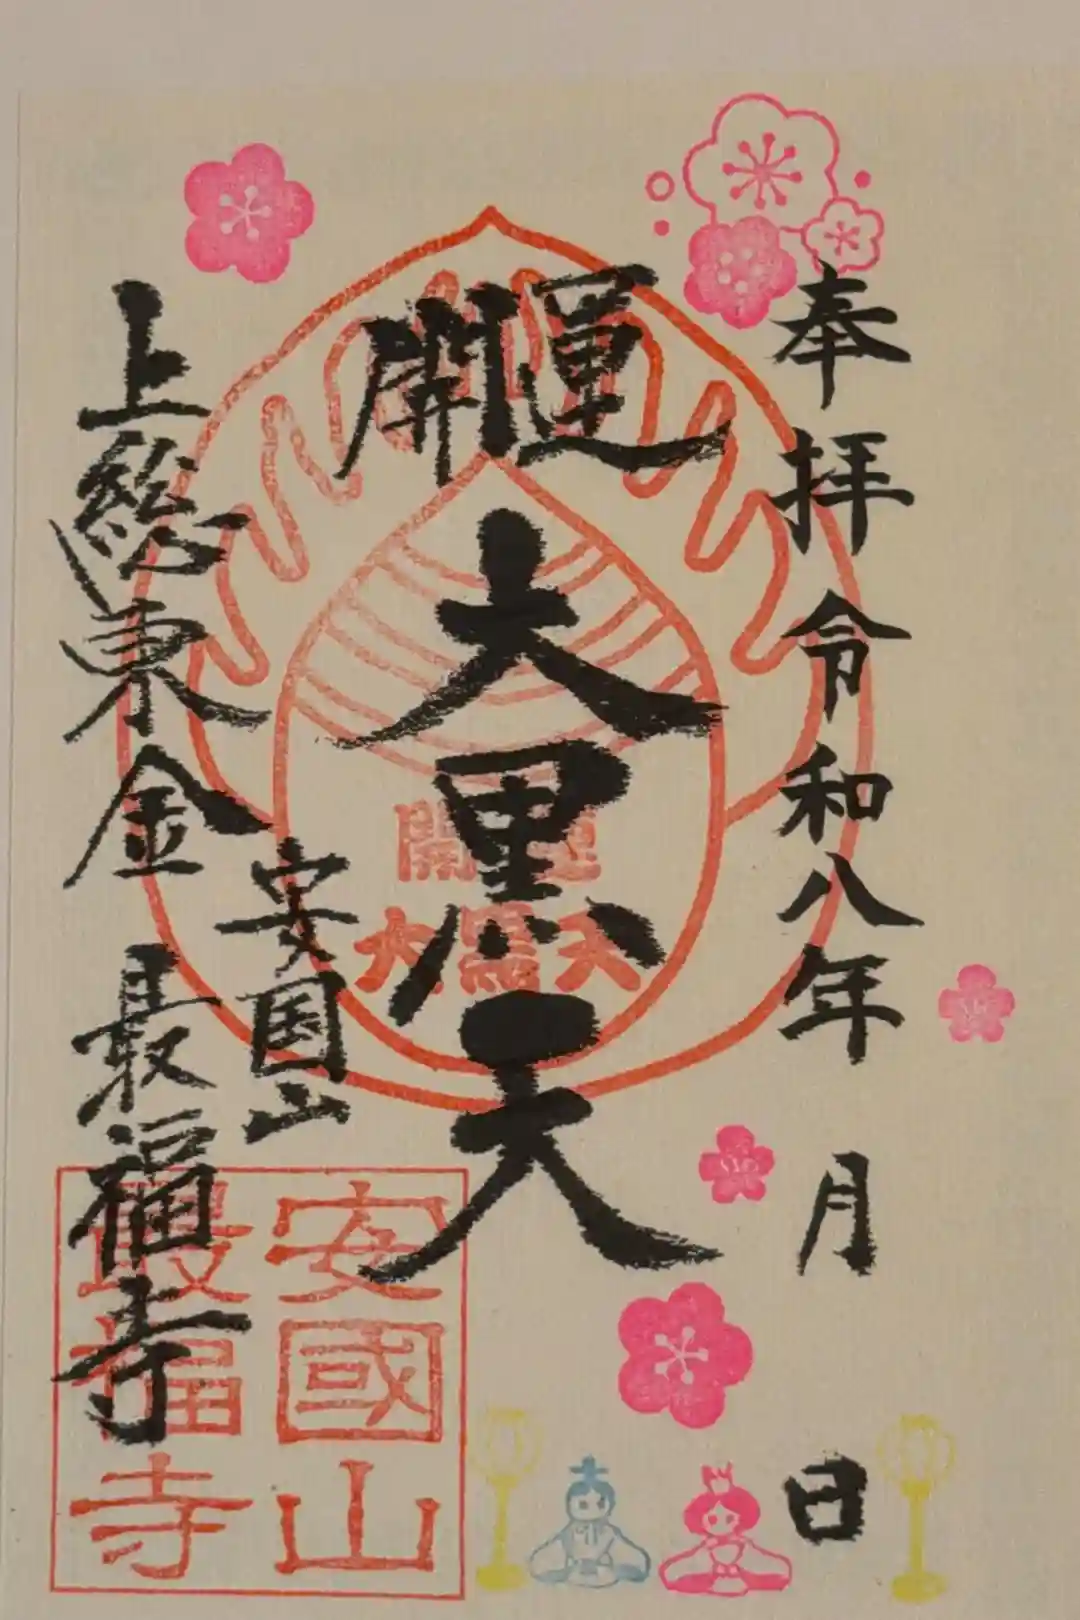 奉拝 令和八年 月 日
開運
大黒天
開運
大黒天
安国山
上総東金 最福寺
安國山
最福寺